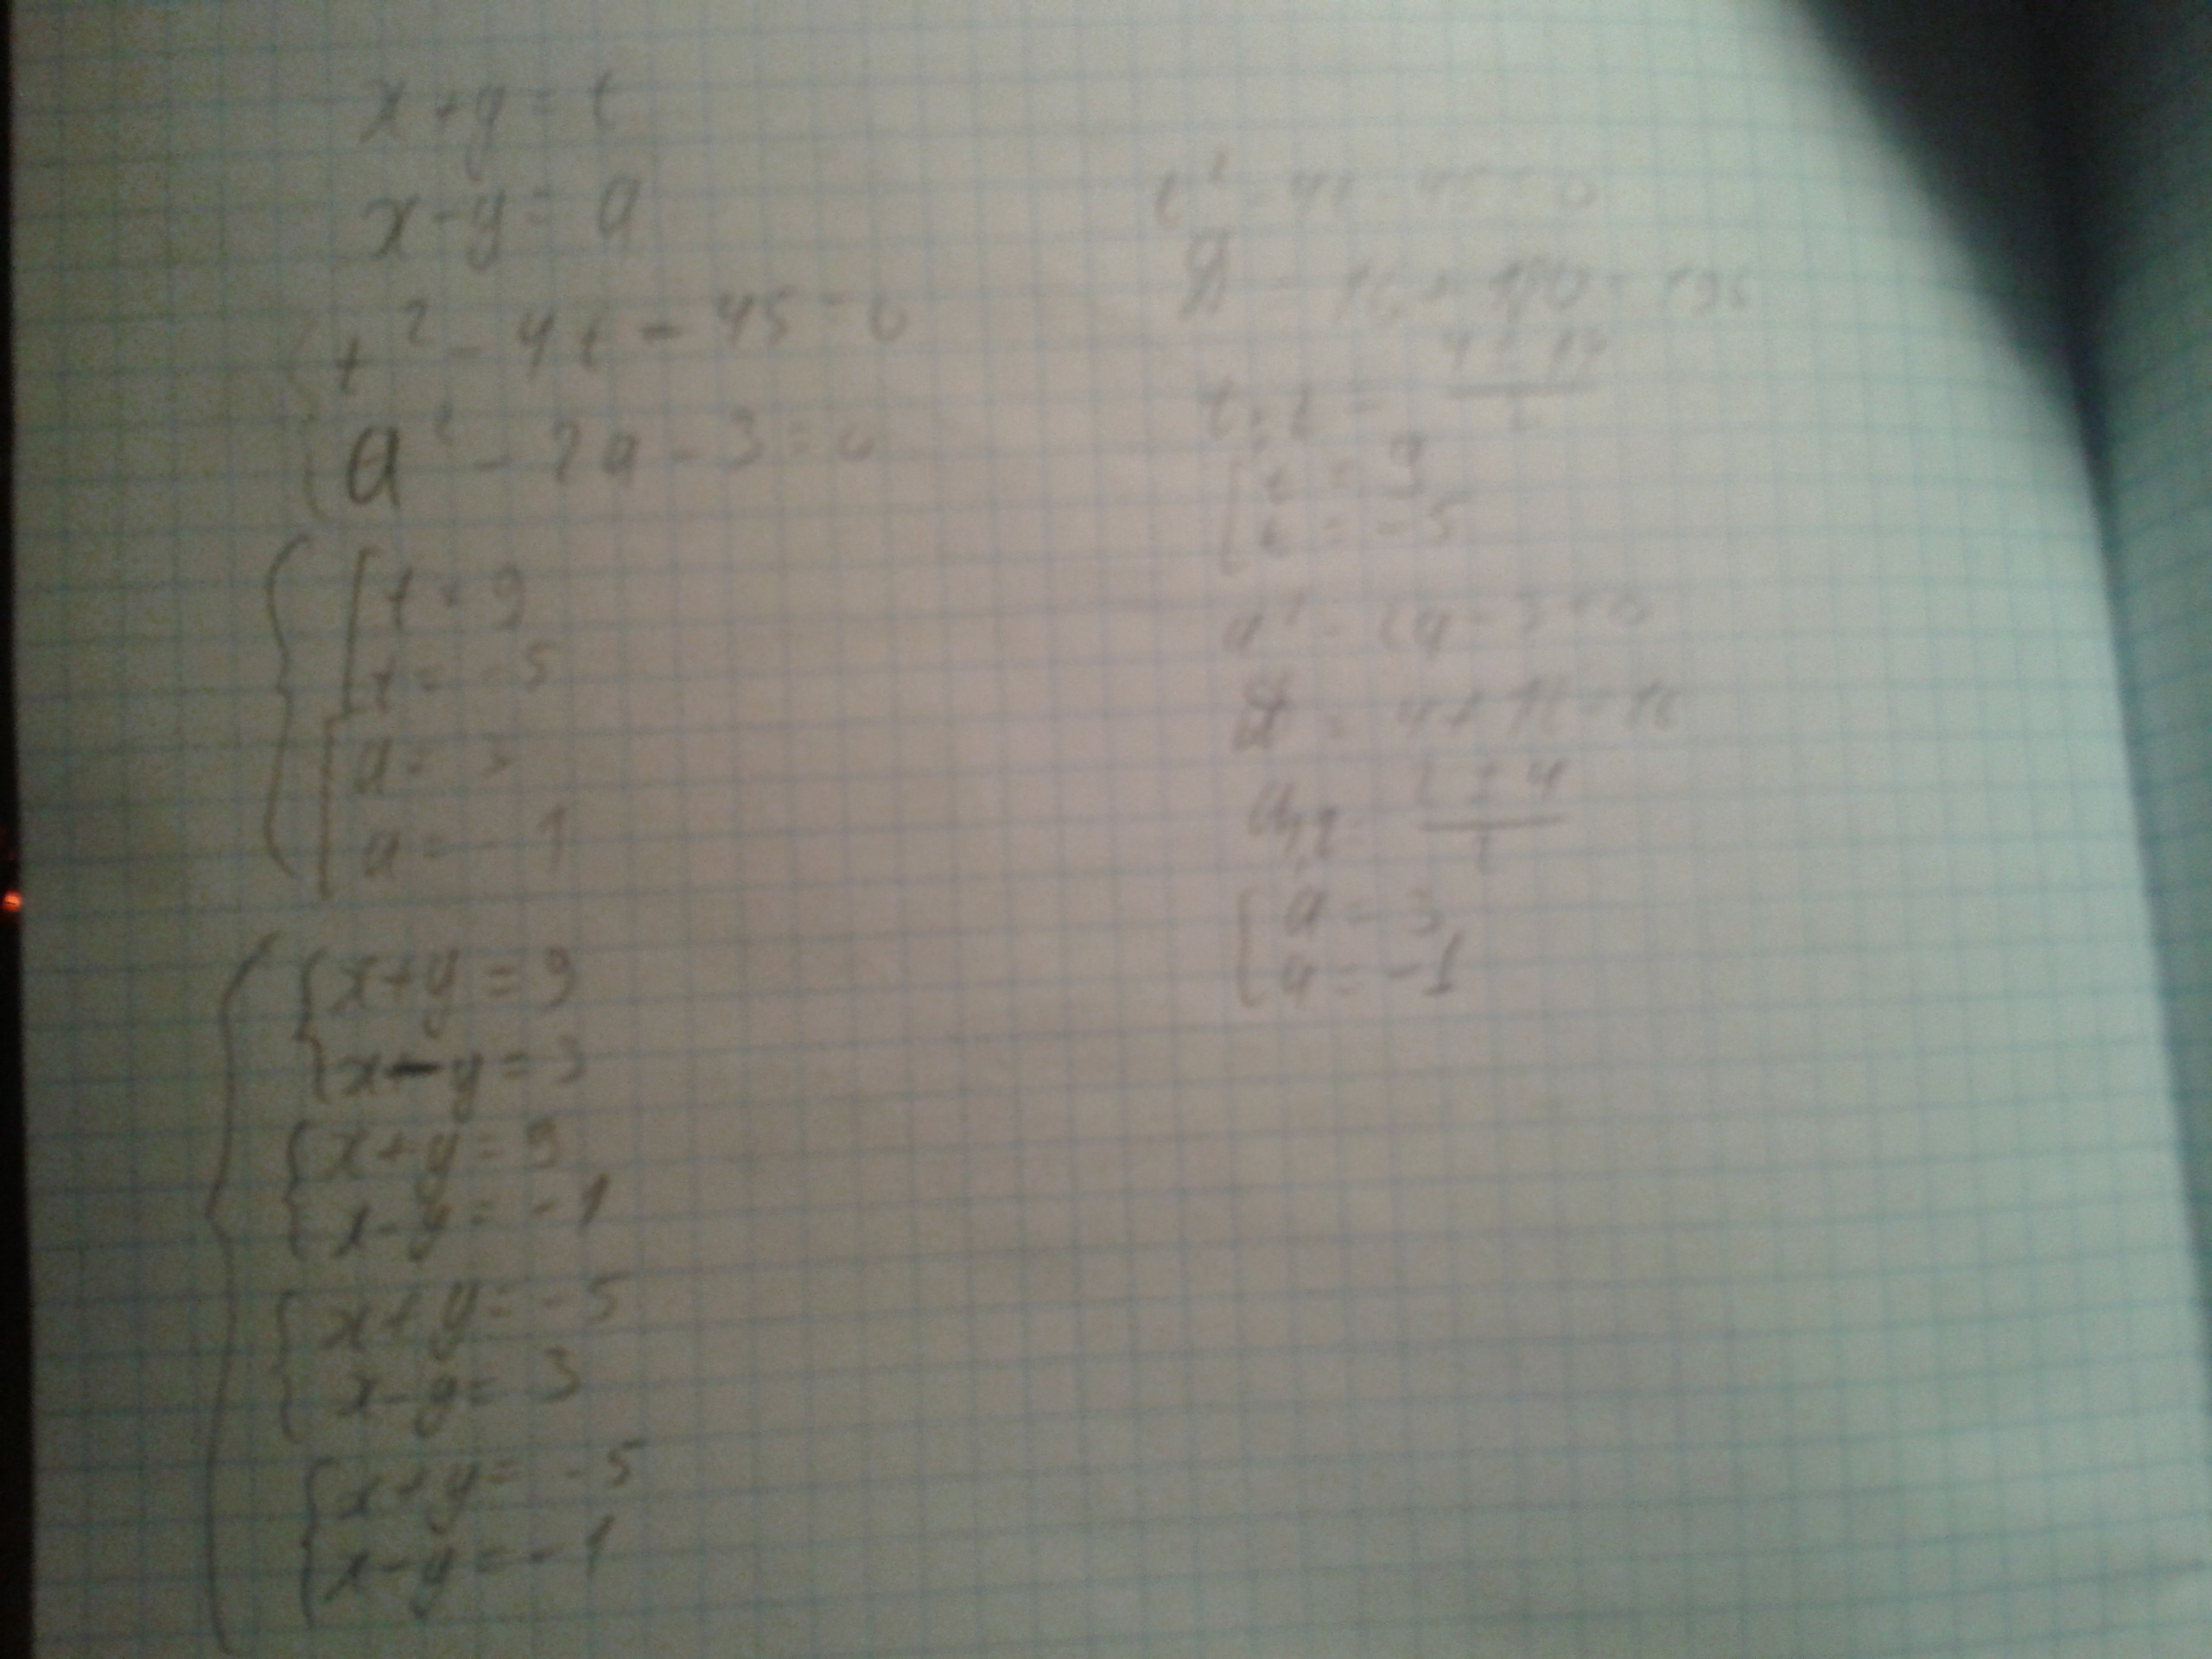 x+y=t
x-y=a
t²-4t-45=0
a²-2a-3=0
t=9
t=-5
a=3
a=-1
x+y=9
x-y=3
x+y=9
x-y=-1
x+y=-5
x-y=3
x+y=-5
x-y=-1
t²-4t-45=0
D=16+180=196
t₁,₂=(4±14)/2
t=9
t=-5
a²-2a-3=0
D=4+12=16
a₁,₂=(2±4)/2
a=3
a=-1